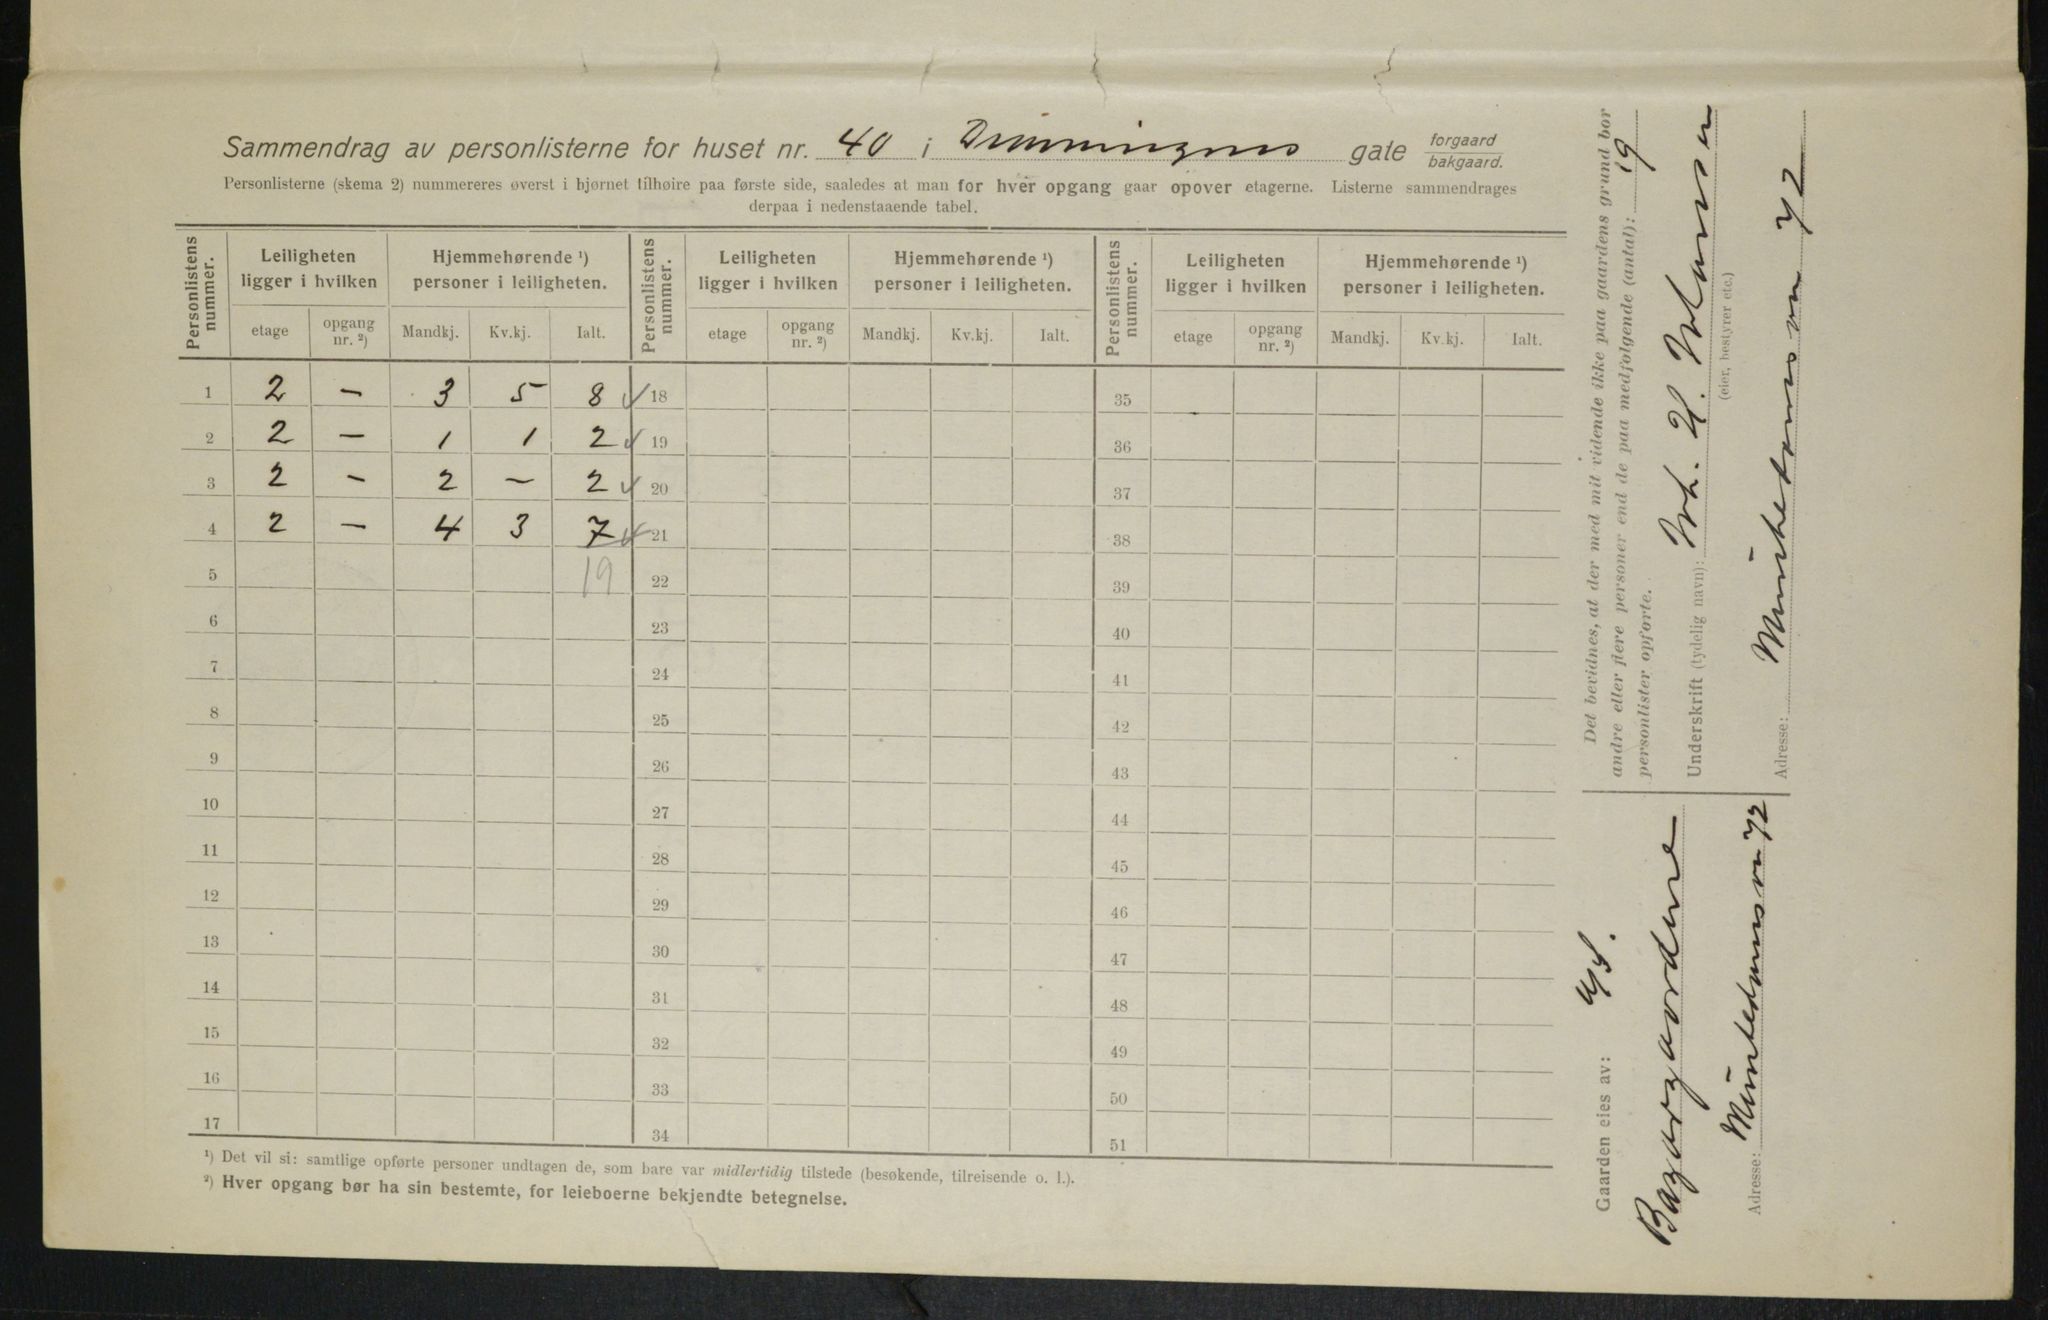 Sammendrag av personlisterne for huset nr. 40 i Dronningens gate forgaard bakgaard.
Personlisterne (skema 2) nummereres øverst i hjørnet tilhøire paa første side, saaledes at man for hver opgang gaar opover etagerne. Listerne sammendrages
derpaa i nedenstaaende tabel.
Personlistens nummer. Leiligheten ligger i hvilken Hjemmehørende ¹) personer i leiligheten. Personlistens nummer. Leiligheten ligger i hvilken Hjemmehørende ¹) personer i leiligheten. Personlistens nummer. Leiligheten ligger i hvilken Hjemmehørende ¹) personer i leiligheten.
etage opgang nr. ²) Mandkj. Kv.kj. Ialt. etage opgang nr. ²) Mandkj. Kv.kj. Ialt. etage opgang nr. ²) Mandkj. Kv.kj. Ialt.
1 2 – 3 5 8 ✓ 18 35
2 2 – 1 1 2 ✓ 19 36
3 2 – 2 – 2 ✓ 20 37
4 2 – 4 3 7 ✓ 21 38
5 19 22 39
6 23 40
7 24 41
8 25 42
9 26 43
10 27 44
11 28 45
12 29 46
13 30 47
14 31 48
15 32 49
16 33 50
17 34 51
¹) Det vil si: samtlige opførte personer undtagen de, som bare var midlertidig tilstede (besøkende, tilreisende o. l.).
²) Hver opgang bør ha sin bestemte, for leieboerne bekjendte betegnelse.
Det bevidnes, at der med mit vidende ikke paa gaardens grund bor
andre eller flere personer end de paa medfølgende (antal): 19
personlister opførte.
Underskrift (tydelig navn):
(eier, bestyrer etc.)
Adresse: 72
Gaarden eies av: A/S.
Adresse: 72